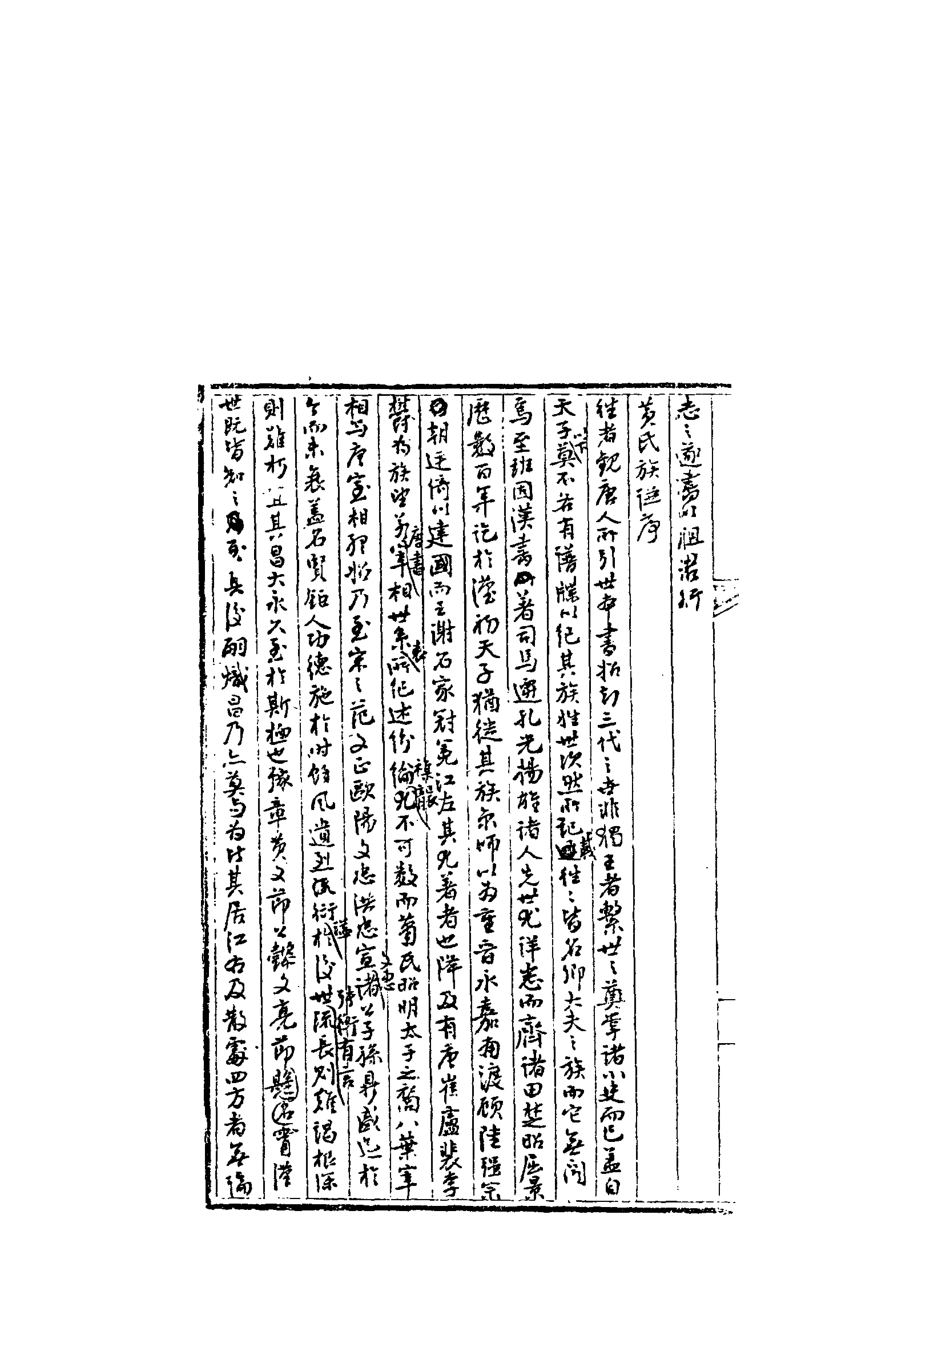 志之遂書以詛沮行
黃氏族從序
往者觀唐人所引世本書推言三代之世非獨王者繫世之奠掌諸小史而已蓋自
天子莫不各有譜牒以紀其族姓世次然所記載往往皆名卿大夫之族而它無聞
焉至班固漢書所著司馬遷孔光揚雄諸人先世尤詳悉而齊諸田楚昭屈景
歷數百年訖於漢初天子猶徙其族京師以為重晉永嘉南渡顧陸彊宗
朝廷倚以建國而王謝右家冠冕江左其尤著者也降及有唐崔盧裴李
鬱為族望唐書宰相世系表所紀述紛綸襍襲不可數而蕭氏昭明太子之裔八葉宰
相與唐室相終始乃至宋之范文正歐陽文忠洪忠宣文忠諸公子孫鼎盛迄於
今而未衰蓋名賢鉅人功德施於時餘風遺烈流衍於後世張衡有言流長則難竭根深
則難朽宜其昌大永久至於斯極也豫章黃文節公與文亮節懿名霄漢
世既皆知之至其後嗣熾昌乃亦莫與為比其居江右及散處四方者無論